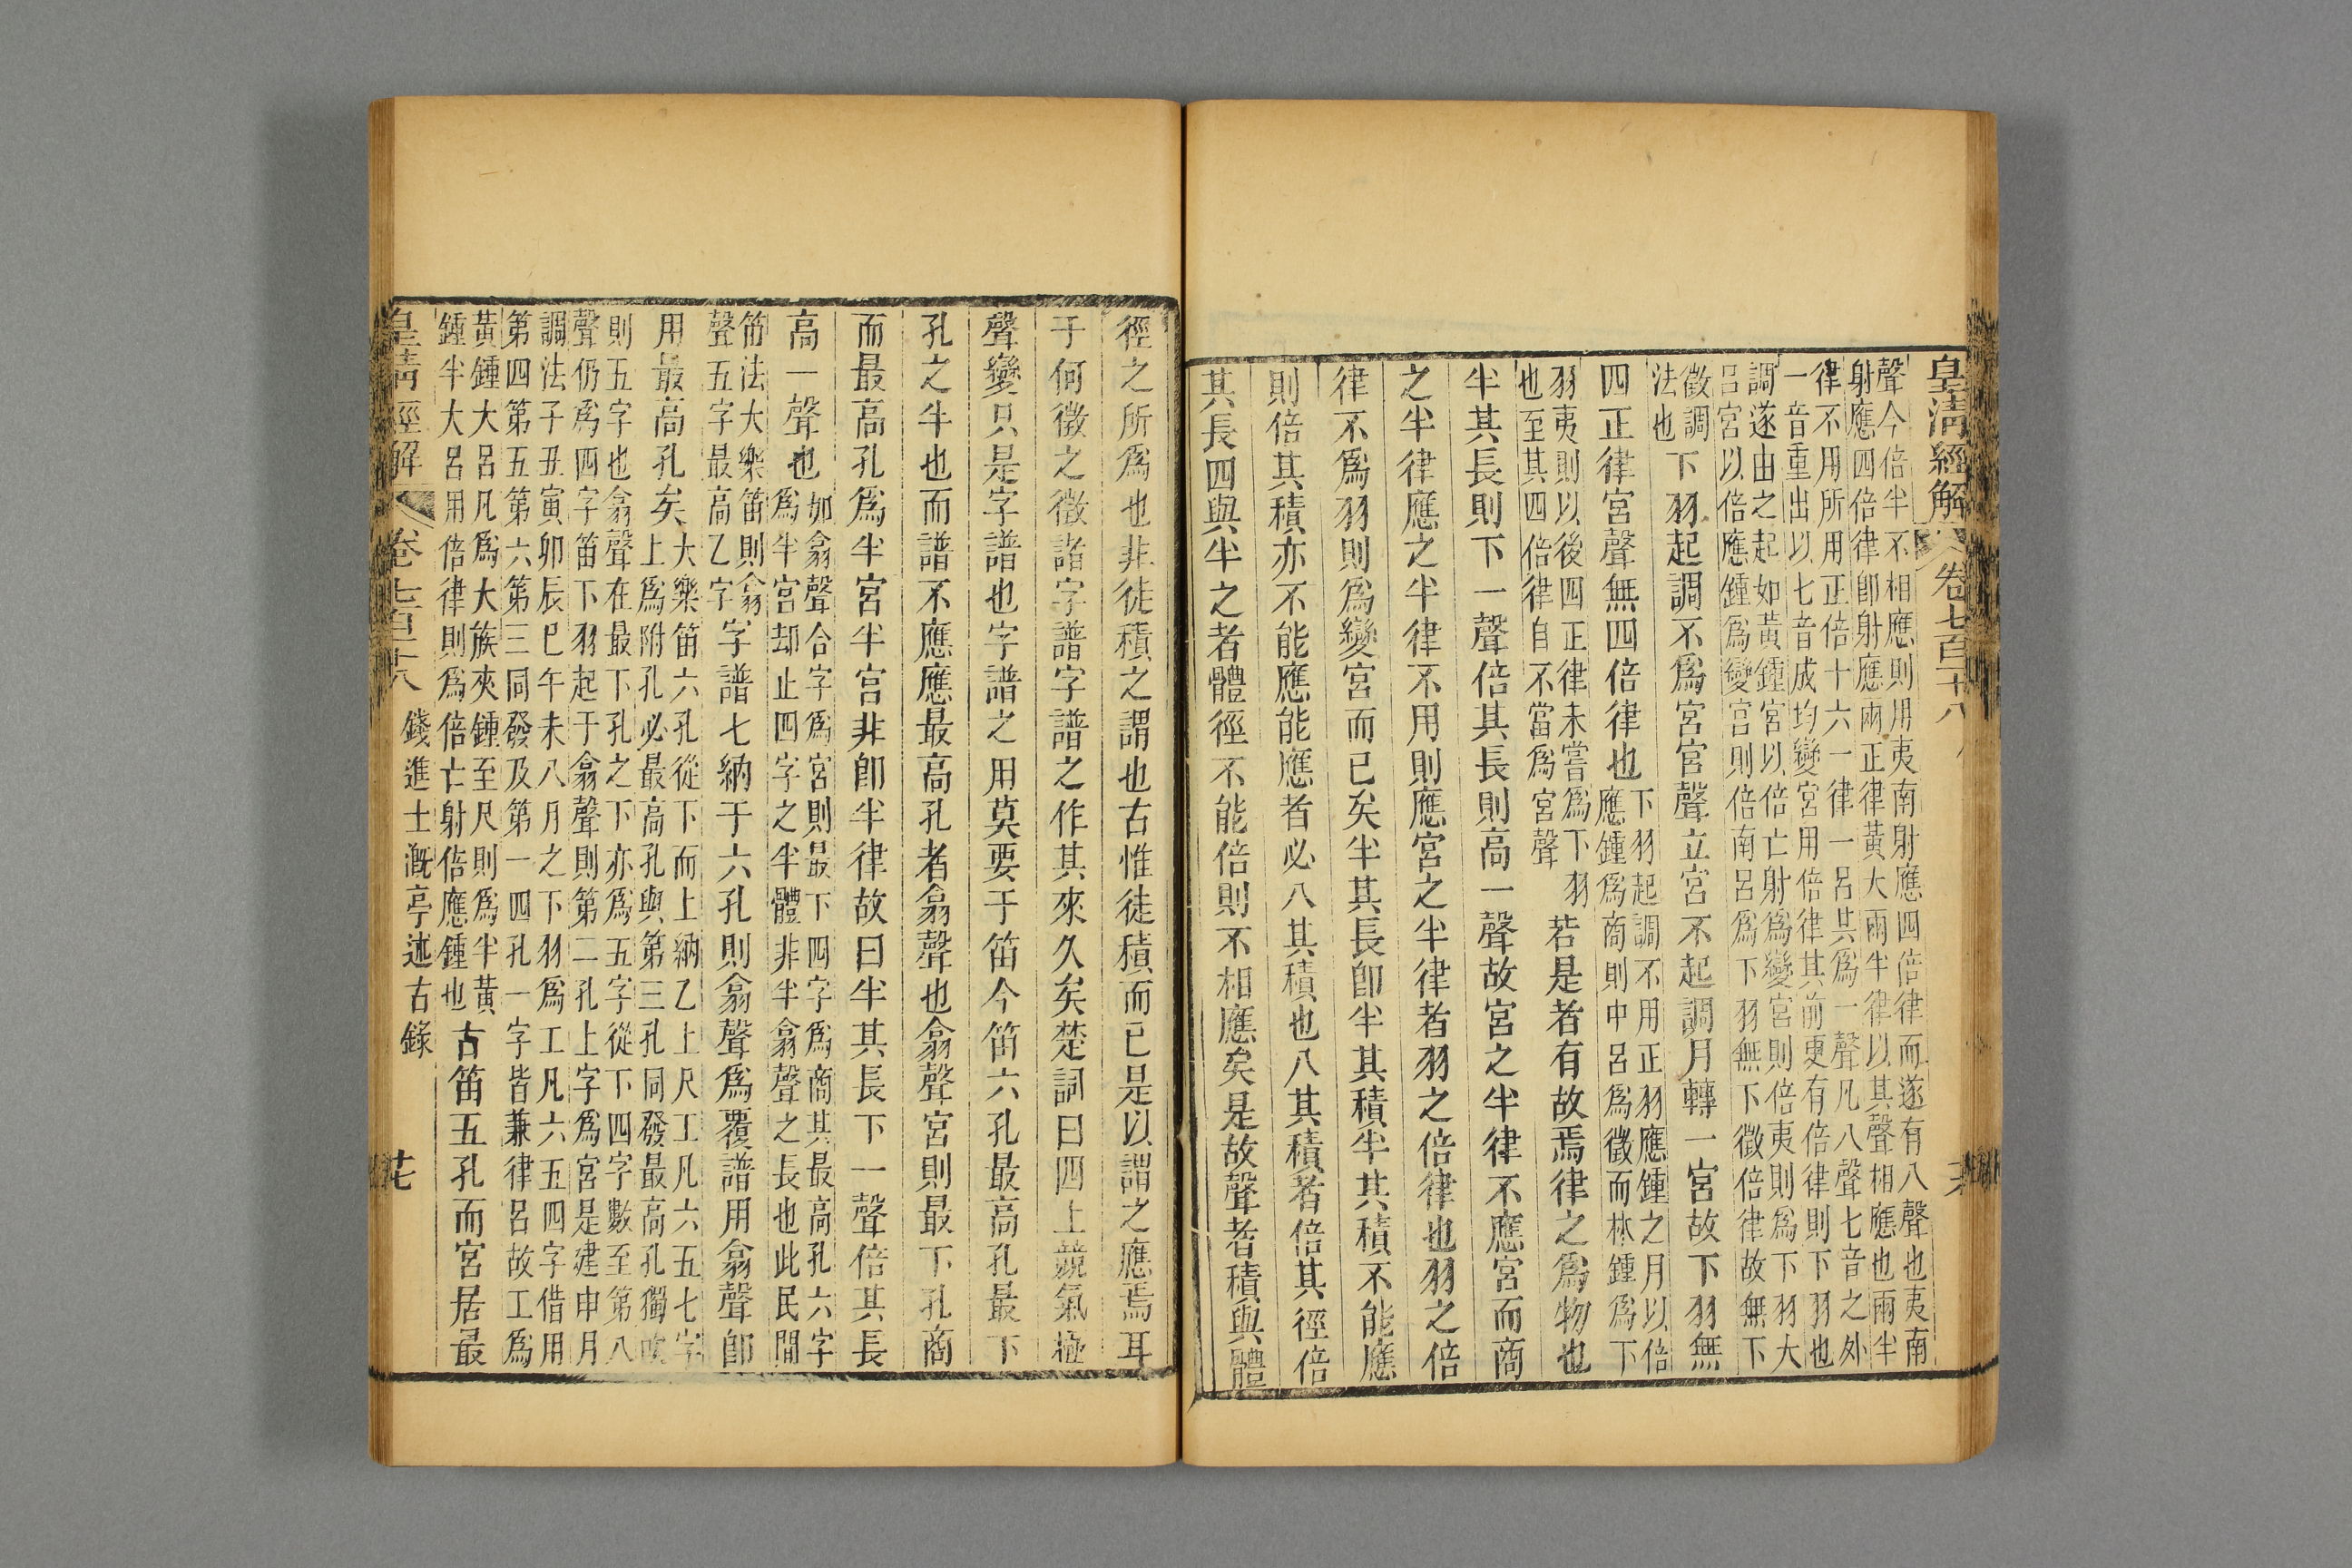 皇清經解 卷七百十八
聲今倍半不相應則用夷南射應四倍律而遂有八聲也夷南
射應四倍律卽射應兩正律黃大兩半律以其聲相應也兩半
律不用所用正倍十六一律一呂共爲一聲凡八聲七音之外
一音重出以七音成均變宮用倍律其前更有倍律則下羽也
調遂由之起如黃鍾宮以倍亡射爲變宮則倍夷則爲下羽大
呂宮以倍應鍾爲變宮則倍南呂爲下羽無下徵倍律故無下
徵調
法也
下羽起調不爲宮宮聲立宮不起調月轉一宮故下羽無
四正律宮聲無四倍律也
下羽起調不用正羽應鍾之月以倍
應鍾爲商則中呂爲徵而林鍾爲下
羽夷則以後四正律未嘗爲下羽
也至其四倍律自不當爲宮聲
若是者有故焉律之爲物也
半其長則下一聲倍其長則高一聲故宮之半律不應宮而商
之半律應之半律不用則應宮之半律者羽之倍律也羽之倍
律不爲羽則爲變宮而已矣半其長卽半其積半其積不能應
則倍其積亦不能應能應者必八其積也八其積者倍其徑倍
其長四與半之者體徑不能倍則不相應矣是故聲者積與體
徑之所爲也非徒積之謂也古惟徒積而已是以謂之應焉耳
于何徵之徵諸字譜字譜之作其來久矣楚詞曰四上競氣極
聲變只是字譜也字譜之用莫要于笛今笛六孔最高孔最下
孔之半也而譜不應應最高孔者翕聲也翕聲宮則最下孔商
而最高孔爲半宮半宮非卽半律故曰半其長下一聲倍其長
高一聲也
如翕聲合字爲宮則最下四字爲商其最高孔六字
爲半宮却止四字之半體非半翕聲之長也此民間
笛法大樂笛則翕
聲五字最高乙字
字譜七納于六孔則翕聲爲覆譜用翕聲卽
用最高孔矣
大樂笛六孔從下而上納乙上尺工凡六五七字
上爲附孔必最高孔與第三孔同發最高孔獨吹
則五字也翕聲在最下孔之下亦爲五字從下四字數至第八
聲仍爲四字笛下羽起于翕聲則第二孔上字爲宮是建申月
調法子丑寅卯辰巳午未八月之下羽爲工凡六五四字借用
第四第五第六第三同發及第一四孔一字皆兼律呂故工爲
黃鍾大呂凡爲大族夾鍾至尺則爲半黃
鍾半大呂用倍律則爲倍亡射倍應鍾也
古笛五孔而宮居最
皇清經解 卷七百十八 錢進士溉亭述古錄